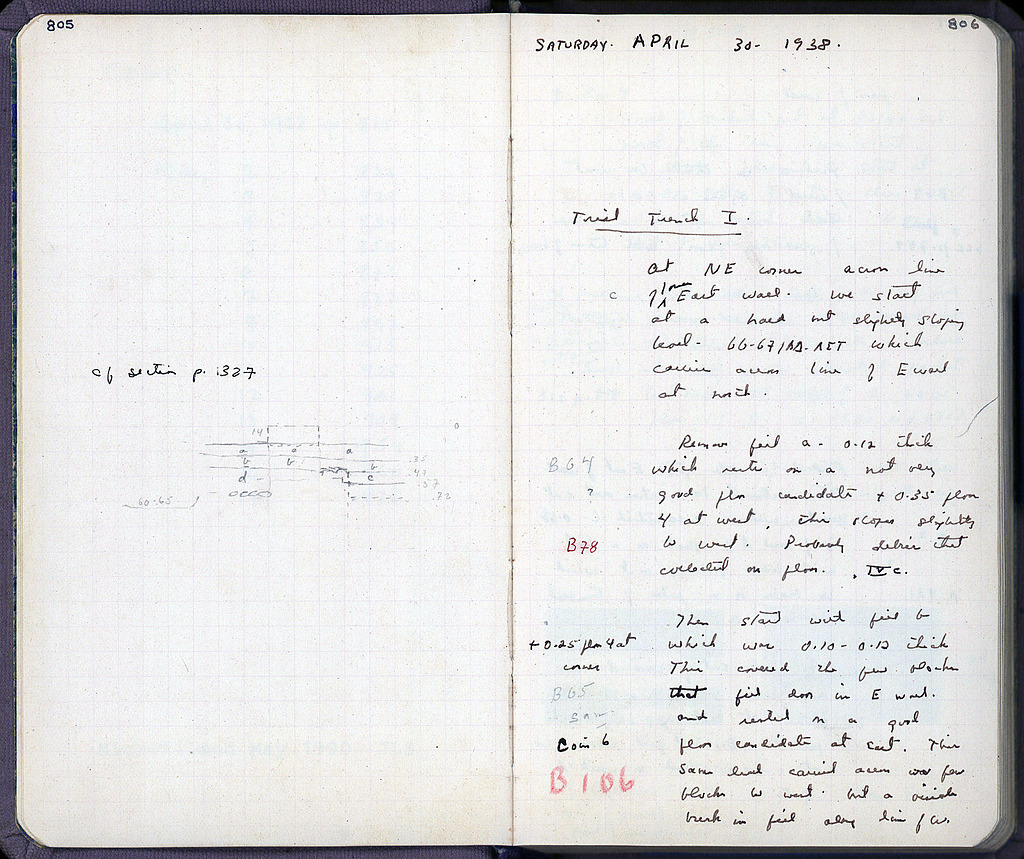 805
cf section p. 1327
14
a a a
b b b
d c
.35
.47
.57
.72
60-65
806
SATURDAY. APRIL 30- 1938.
Trial Trench I.
at NE corner across line
c of lower East wall. we start
at a hard but slightly sloping
level- 66-67/ which
carries across line of E wall
at north.
Remove fill a - 0.12 thick
B64 which rests on a not very
? good floor candidate + 0.35 floor
4 at west, this slopes slightly
B78 to west. Probably debris that
collected on floor. IV c.
Then start with fill b
+ 0.25 floor 4 at which was 0.10-0.12 thick
corner This covered the few blocks
B65 that fill door in E wall.
- Sam. and rested on a good
Coin 6 floor candidate at east. This
B106 same level carried across over few
blocks to west. but a visible
break in fill along line of